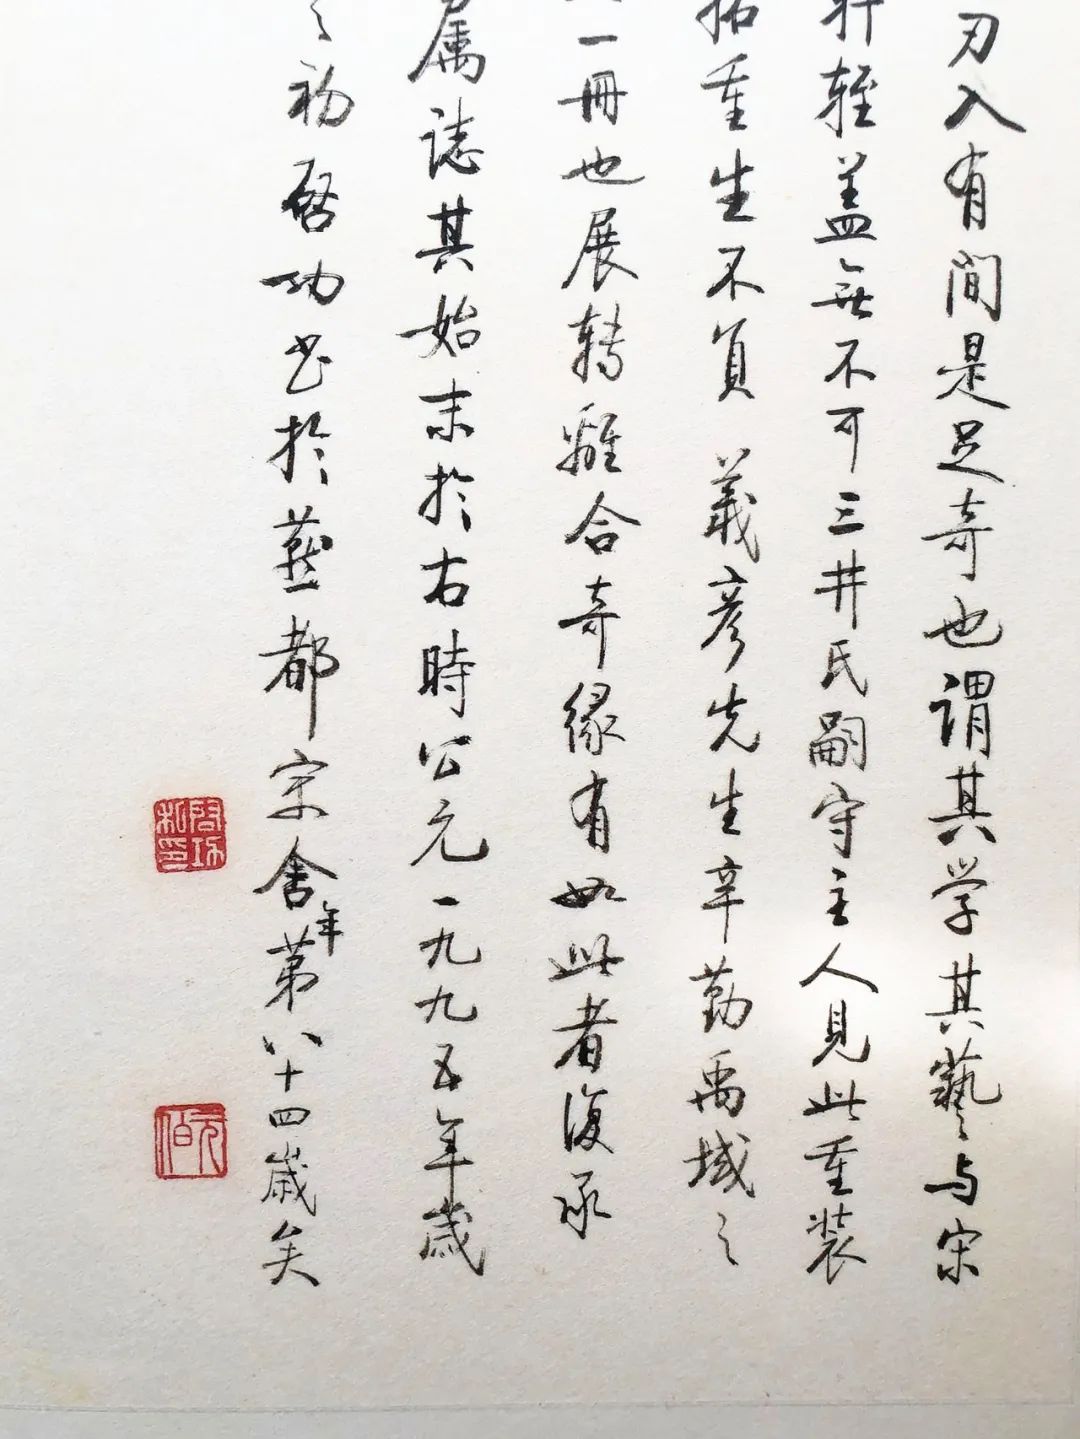 刃入有间是足奇也谓其学其藝与宋
軒輊盖無不可三井氏嗣守主人見此重装
拓重生不負 義彦先生辛勤禹域之
一冊也展转離合奇緣有如此者復承
属誌其始末於右時公元一九九五年歲
之初啓功书於燕都寓舍年第八十四歲矣
啓功私印
元伯